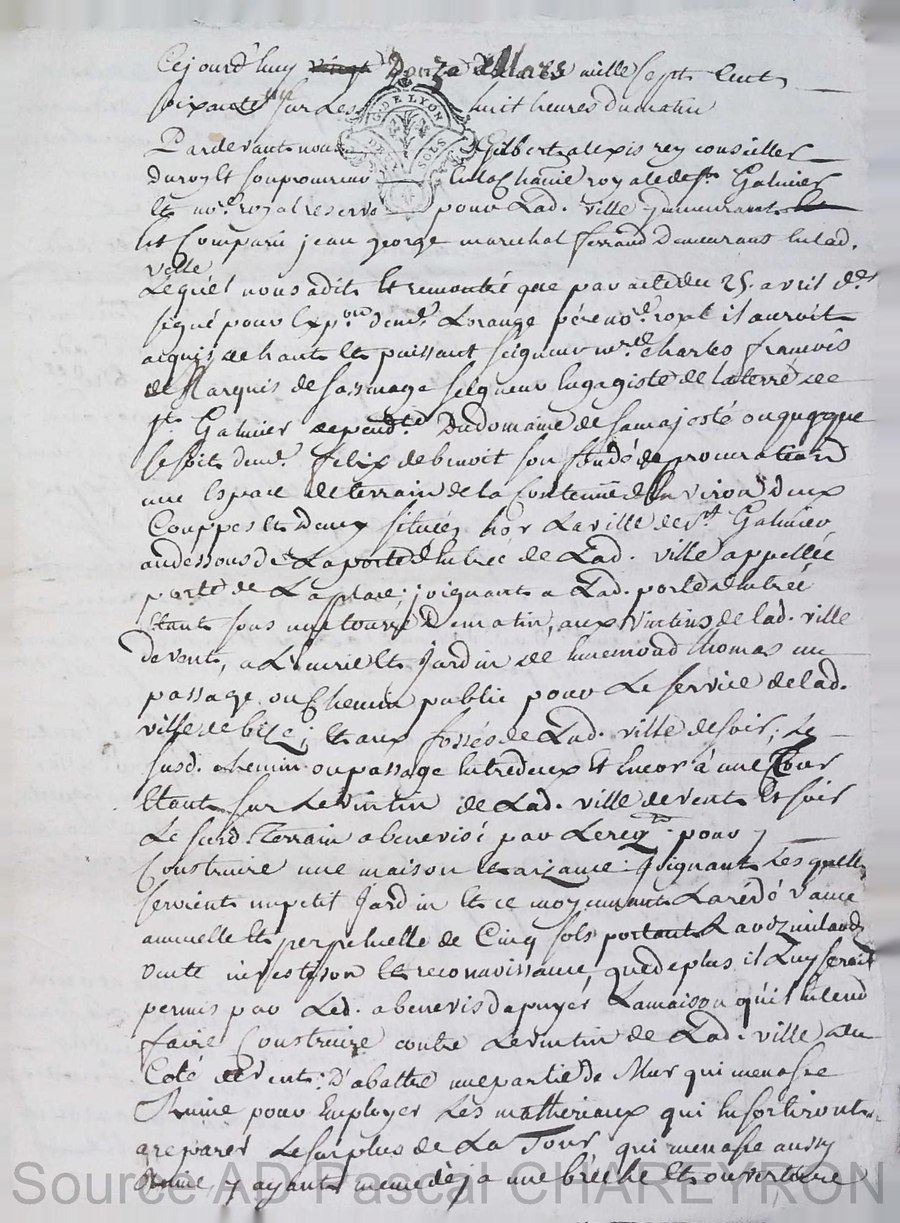 Cejourd'huy vingt Douze Mars mille sept cent
soixante sur les huit heures du matin
G. DE LYON
DEUX SOLS
Pardevant nous Gilbert alexis rey conseiller
du roy et son procureur en la Chatnie royale de st Galmier
et nore royal reservé pour Lad. ville y demeurant
est Comparu jean george marechal ferrand Demeurans en lad.
ville
Lequel nous a dit et remontré que par acte du 25. avril dr
signé pour expon demr. Lorange père nore royal il auroit
acquis de haut et puissant seigneur mre charles françois
de Marquis de sassenage seigneur engagiste de la terre de
st Galmier dependte Du domaine de sa majesté ou quoyque
ce soit demr. felix de benoit son fondé de procuration
une Espace de terrain de la Contenue d'Environ deux
Couppes et demy située hor La ville de st Galmier
au dessous de La porte d'entrée de Lad. ville appellée
porte de La place; joignant a Lad. porte d'entrée
Etant sous une tour de matin, aux vintins de lad. ville
de vent, a L'ecurie et jardin de enemond thomas un
passage ou chemin public pour Le service de lad.
ville de bize; et aux fossés de Lad. ville de soir; Le
susd. chemin ou passage entredeux et encor à une Tour
Etant sur Le vintin de Lad. ville de vent et soir
Le susd. Terrain abenevisé par Le req. pour y
Construire une maison et aizance joignant Les quelle
servient un petit jardin et ce moyennant La rédévance
annuelle et perpetuelle de Cinq sols portant Laodz milaodz
vente investison et reconoissance, que de plus il Luy seroit
permis par Led. abenevis d'apuyer La maison qu'il entend
faire Construire contre Le vintin de Lad. ville du
Coté de vent: D'abattre une partie du Mur qui menasse
Ruine pour Employer Les matheriaux qui en sortiront
a reparer Le surplus de La Tour qui menasse aussy
Ruine, y ayant meme déja une brèche et ouverture
Source AD Pascal CHAREYRON